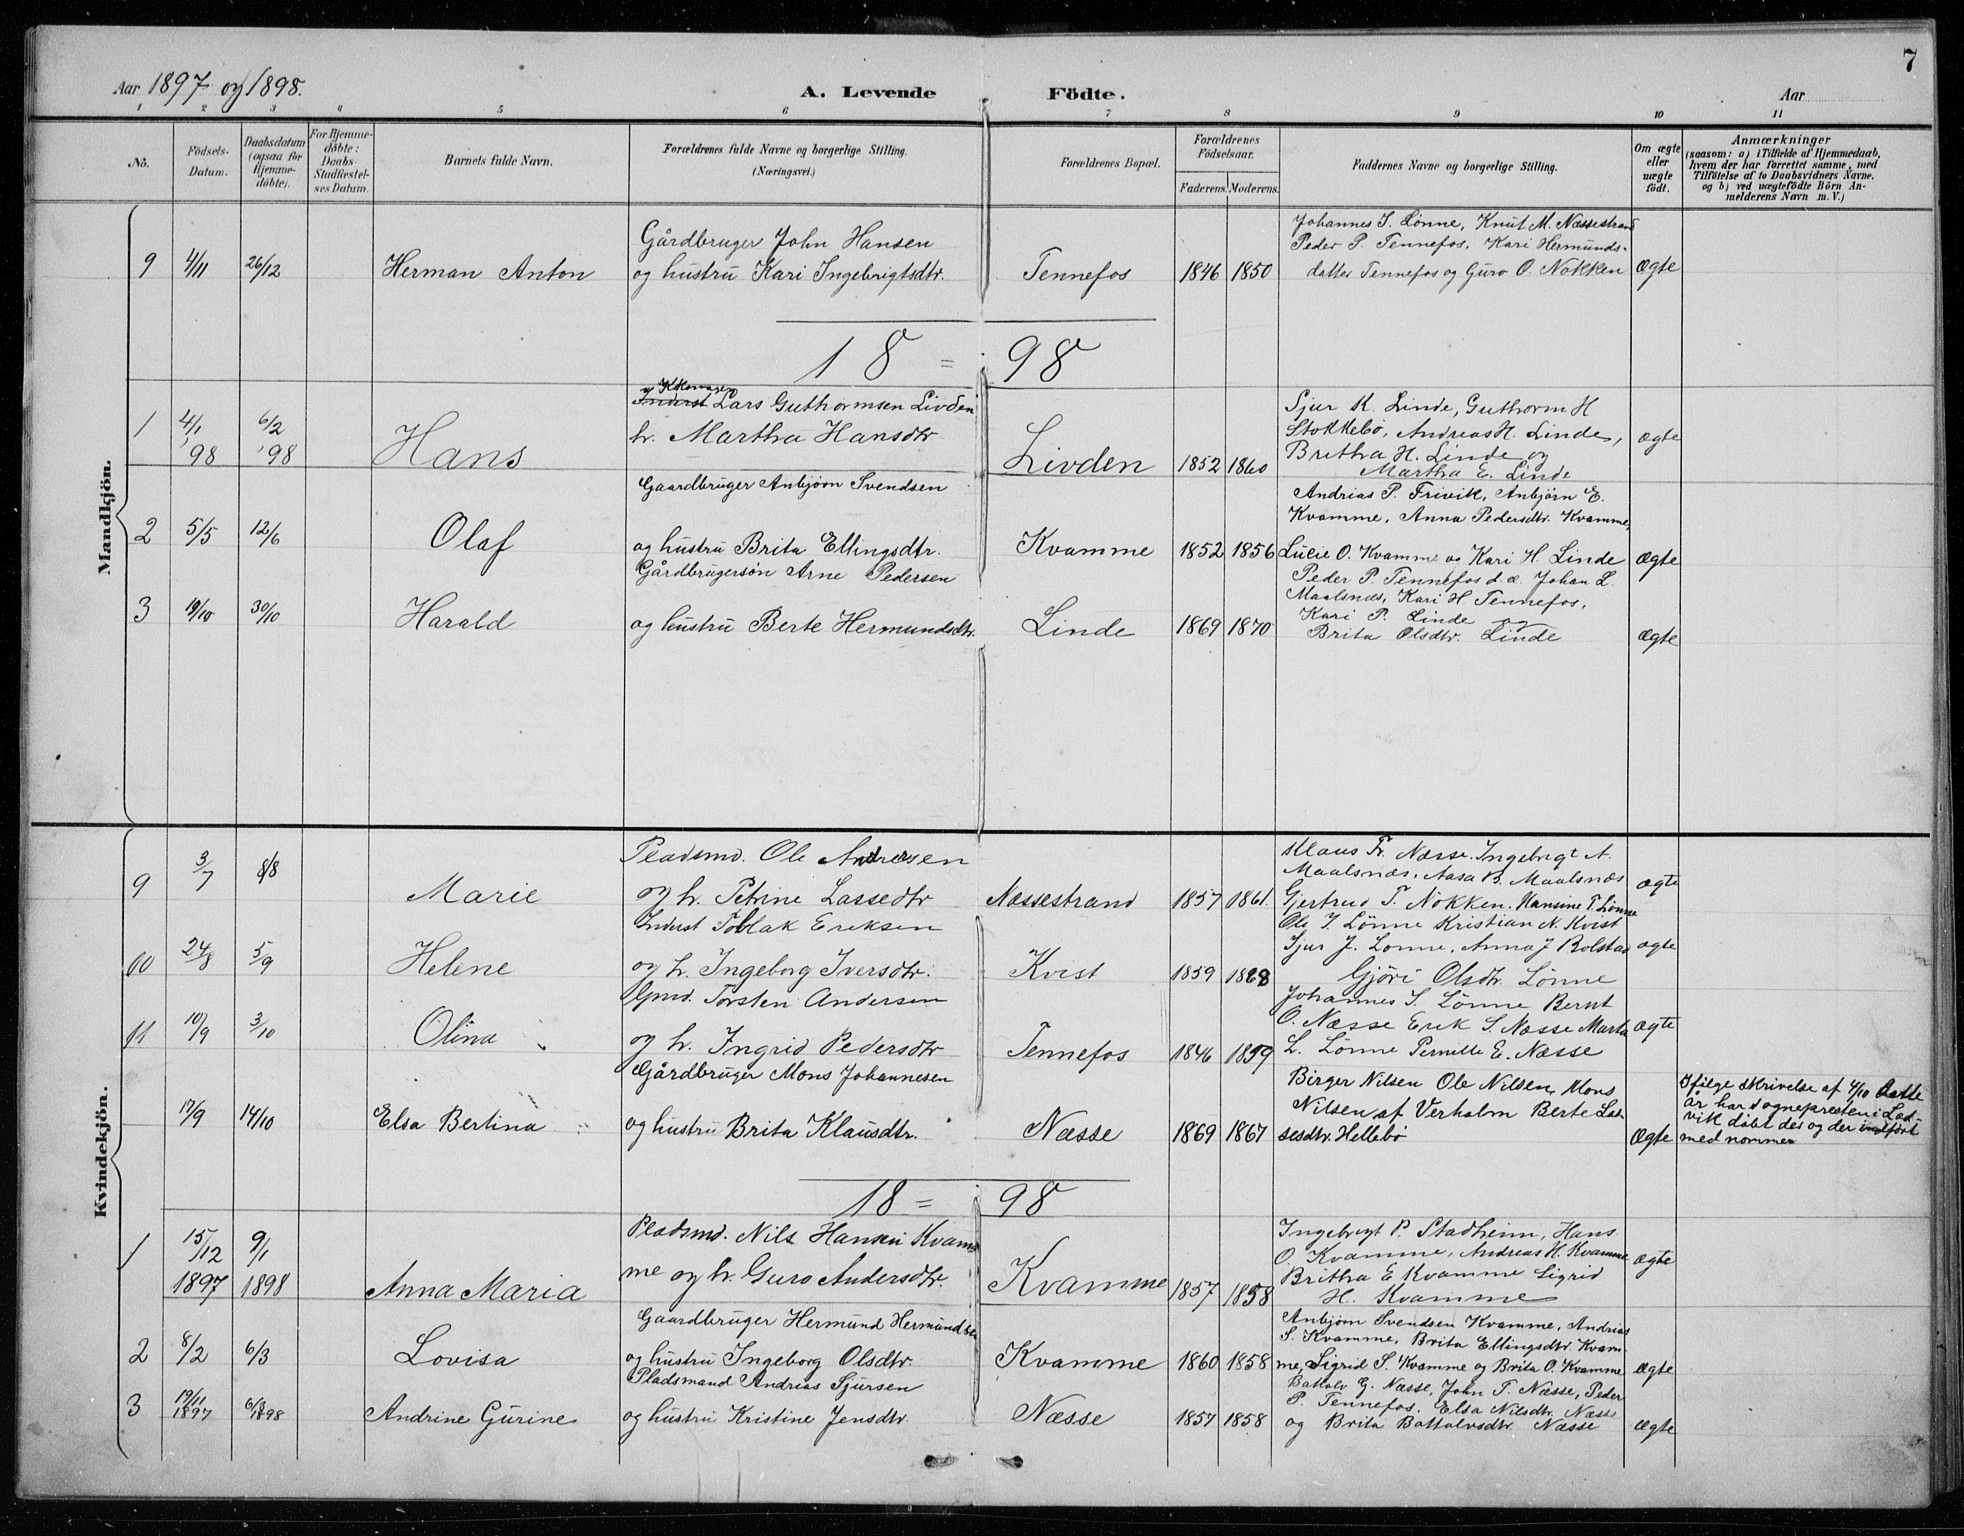 7
Aar 1897 og 1898.
A. Levende Födte.
Aar
1 2 3 4 5 6 7 8 9 10 11
No.
Födsels-Datum.
Daabsdatum (ogsaa for Hjemme-döbte).
For Hjemme-döbte: Daabs-Stadfæstel-ses Datum.
Barnets fulde Navn.
Forældrenes fulde Navne og borgerlige Stilling.
(Næringsvei.)
Forældrenes Bopæl.
Forældrenes Födselsaar.
Faderens. Moderens.
Faddernes Navne og borgerlige Stilling.
Om ægte eller uægte födt.
Anmærkninger
(saasom: a) i Tilfælde af Hjemmedaab, hvem der har forrettet samme, med Tilföielse af to Daabsvidners Navne. og b) ved uægtefödte Börn An-melderens Navn m. V.)
Mandkjön.
9 4/11 26/12 Herman Anton
Gårdbruger John Hansen
og hustru Kari Ingebrigtsdtr.
Tennefos 1846 1850
Johannes S. Lønne, Knut M. Næssestrand
Peder P. Tennefos, Kari Hermunds-
datter Tennefos og Guro O. Nokken
Ægte
18 = 98
1 4/1 '98 6/2 '98 Hans
Inderst Lars Guthormsen Livden
h. Martha Hansdtr
Livden 1852 1860
Sjur K. Linde, Guthorm H
Stokkebø, Andreas H. Linde,
Britha H. Linde og
Martha E. Linde
ægte
2 5/5 12/6 Olaf
Gaardbruger Anbjørn Svendsen
og hustru Brita Ellingsdtr.
Kvamme 1852 1856
Andrias P. Frivik, Anbjørn E.
Kvamme, Anna Pedersdtr. Kvamme,
Lucie O. Kvamme og Kari H. Linde
Ægte
3 19/10 30/10 Harald
Gårdbrugersøn Arne Pedersen
og hustru Berte Hermundsdtr.
Linde 1869 1870
Peder P. Tennefos d. æ. Johan L.
Maalsnæs, Kari H. Tennefos,
Kari P. Linde og
Brita Olsdtr. Linde
Ægte
Kvindekjön.
9 3/7 8/8 Marie
Pladsmd. Ole Andersen
og h. Petrine Lassedtr
Næssestrand 1857 1861.
Klaus Fr. Næsse. Ingebrigt A.
Maalsnæs, Aasa B. Maalsnæs
Gjertrud T. Nokken. Hansine T. Lønne
ægte
10 24/8 5/9 Helene
Inderst Eriksen
og h. Ingeborg Iversdtr.
Kvist 1859 1868
Ole J. Lønne Kristian N. Kvist
Sjur J. Lønne, Anna J Bolstad
Gjøri Olsdtr. Lønne
ægte
11 10/9 3/10 Olina
Gmd. Torsten Andersen
og h. Ingrid Pedersdtr
Tennefos 1846 1859
Johannes S. Lønne Bernt
O. Næsse Erik S. Næsse Marta
L. Lønne Pernille E. Næsse
ægte
17/9 14/10 Elsa Bertina
Gårdbruger Mons Johannesen
og hustru Brita Klausdtr.
Næsse 1869 1867
Birger Nilsen Ole Nilsen, Mons
Nilsen af Verholm Berte Las-
sesdtr. Hellebø
Ægte
Ifølge skrivelse af 4/10
år har sognepresten i Lad-
vik døbt des og der indført
med nommer
18 = 98
1 15/12 1897 9/1 1898 Anna Maria
Pladsmd. Nils Hansen Kvam-
me og h. Guro Andersdtr.
Kvamme 1857 1858
Ingebrigt P. Stadheim, Hans
O. Kvamme, Andreas H. Kvamme
Britha E Kvamme Sigrid
H. Kvamme
ægte
2 8/2 6/3 Lovisa
Gaardbruger Hermund Hermundsen
og hustru Ingeborg Olsdtr.
Kvamme 1860 1858
Anbjørn Svendsen Kvamme, Andrias
S. Kvamme, Brita Ellingsdtr. Kvam-
me, Sigrid S. Kvamme og Brita O. Kvamme
Ægte
3 19/11 1897 6/3 1898 Andrine Gurine
Pladsmand Andrias Sjursen
og hustru Kristine Jensdtr.
Næsse 1857 1858
Battolv G. Næsse, John T. Næsse, Peder
P. Tennefos, Elsa Nilsdtr. Næsse
og Brita Battolvsdtr. Næsse
Ægte